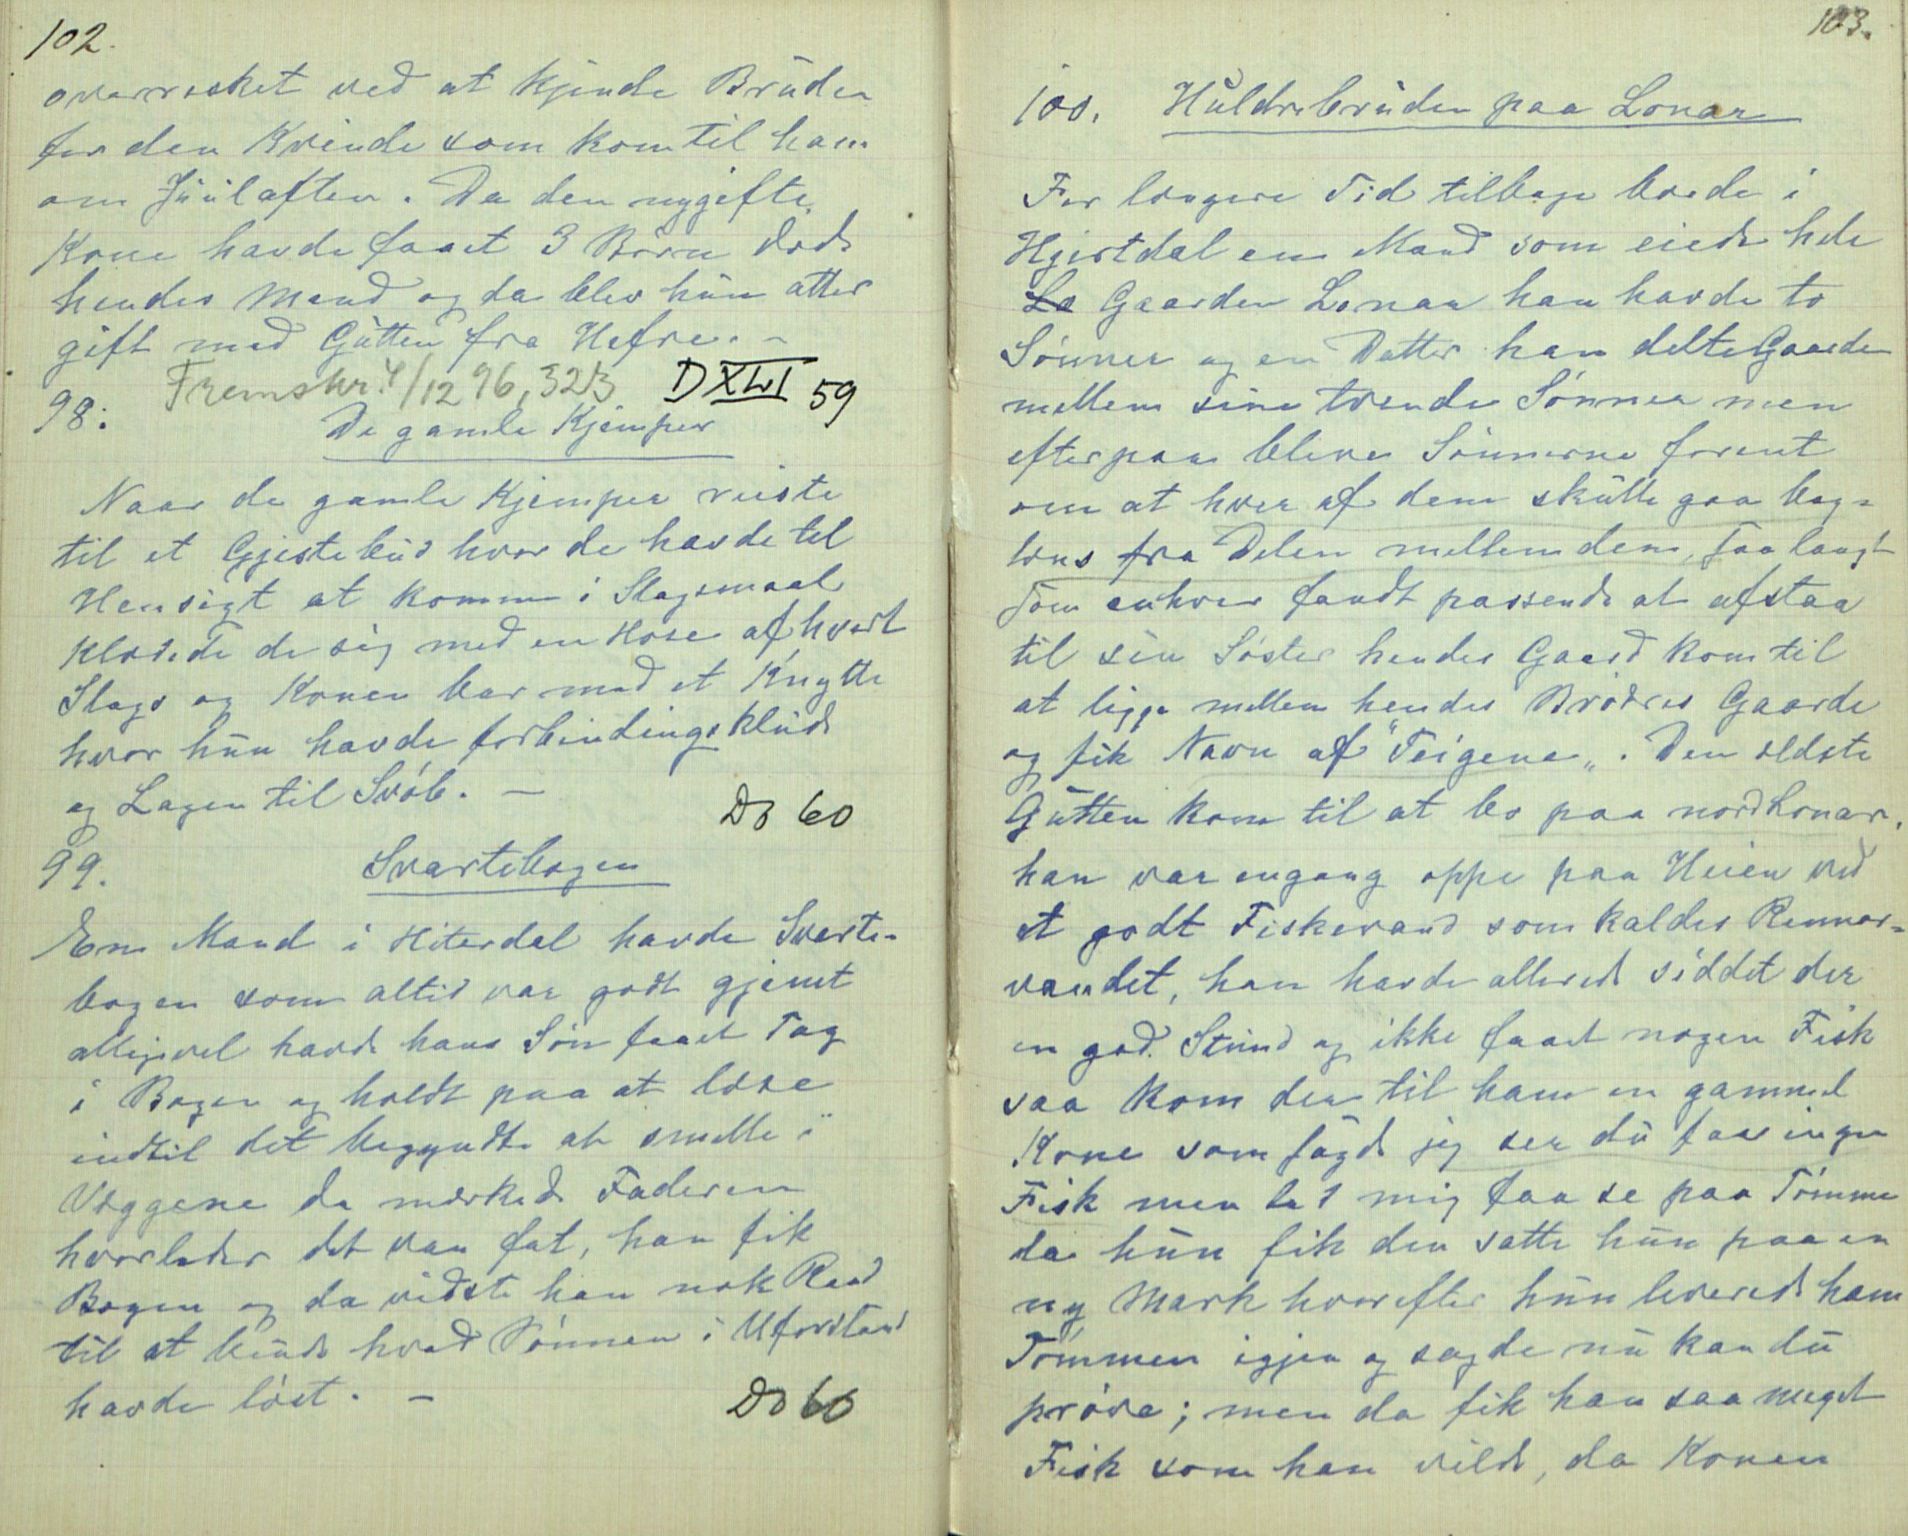 102.
overrasket ved at kjende Bruden
for den Kvinde som kom til ham
om Juulaften. Da den nygifte
Kone havde faaet 3 Börn döde
hendes Mand og da blev hun atter
gift med Gutten fra Hefre. -
Fremskr. 4/12 96, 32/3 DXLI 59
98. De gamle Kjemper
Naar de gamle Kjemper reiste
til et Gjestebud hvor de havde til
Hensigt at komme i Slagsmaal
klædede de sig med en Hose af hvert
Slags og Konen bar med et Knytte
hvor hun havde forbindingsklude
og Lagen til Svöb. -
Do 60
99. Svartebogen
En Mand i Hiterdal havde Svarte-
bogen som altid var godt gjemt
alligevel havde hans Sön faaet Tag
i Bogen og holdt paa at læse
indtil det begyndte at smelle i
Væggene da mærkede Faderen
hvorledes det var fat, han fik
Bogen og da vidste han nok Raad
til at binde hvad Sönnen i Uforstand
havde löst. -
Do 60
103.
100. Huldrebruden paa Lonar
For længere Tid tilbage boede i
Hjertdal en Mand som eiede hele
Lo Gaarden Lonar han havde to
Sönner og en Datter han delte Gaarden
mellem sine tvende Sönner men
efterpaa bleve Sönnerne forent
om at hver af dem skulle gaa bag-
lens fra Delen mellem dem, saa langt
som enhver fandt passende at afstaa
til sin Söster hendes Gaard kom til
at ligge mellem hendes Brödres Gaarde
og fik Navn af "Teigene". Den ældste
Gutten kom til at bo paa nordLonar.
han var engang oppe paa Heien ved
et godt Fiskevand som kaldes Rennar-
vandet, han havde allerede siddet der
en god Stund og ikke faaet nogen Fisk
saa kom der til ham en gammel
Kone som sagde jeg ser du faar ingen
Fisk men lad mig faa se paa Tömmen
da hun fik den satte hun paa en
ny Mark hvorefter hun leverede ham
Tömmen igjen og sagde nu kan du
pröve; men da fik han saa meget
Fisk som han vilde, da Konen